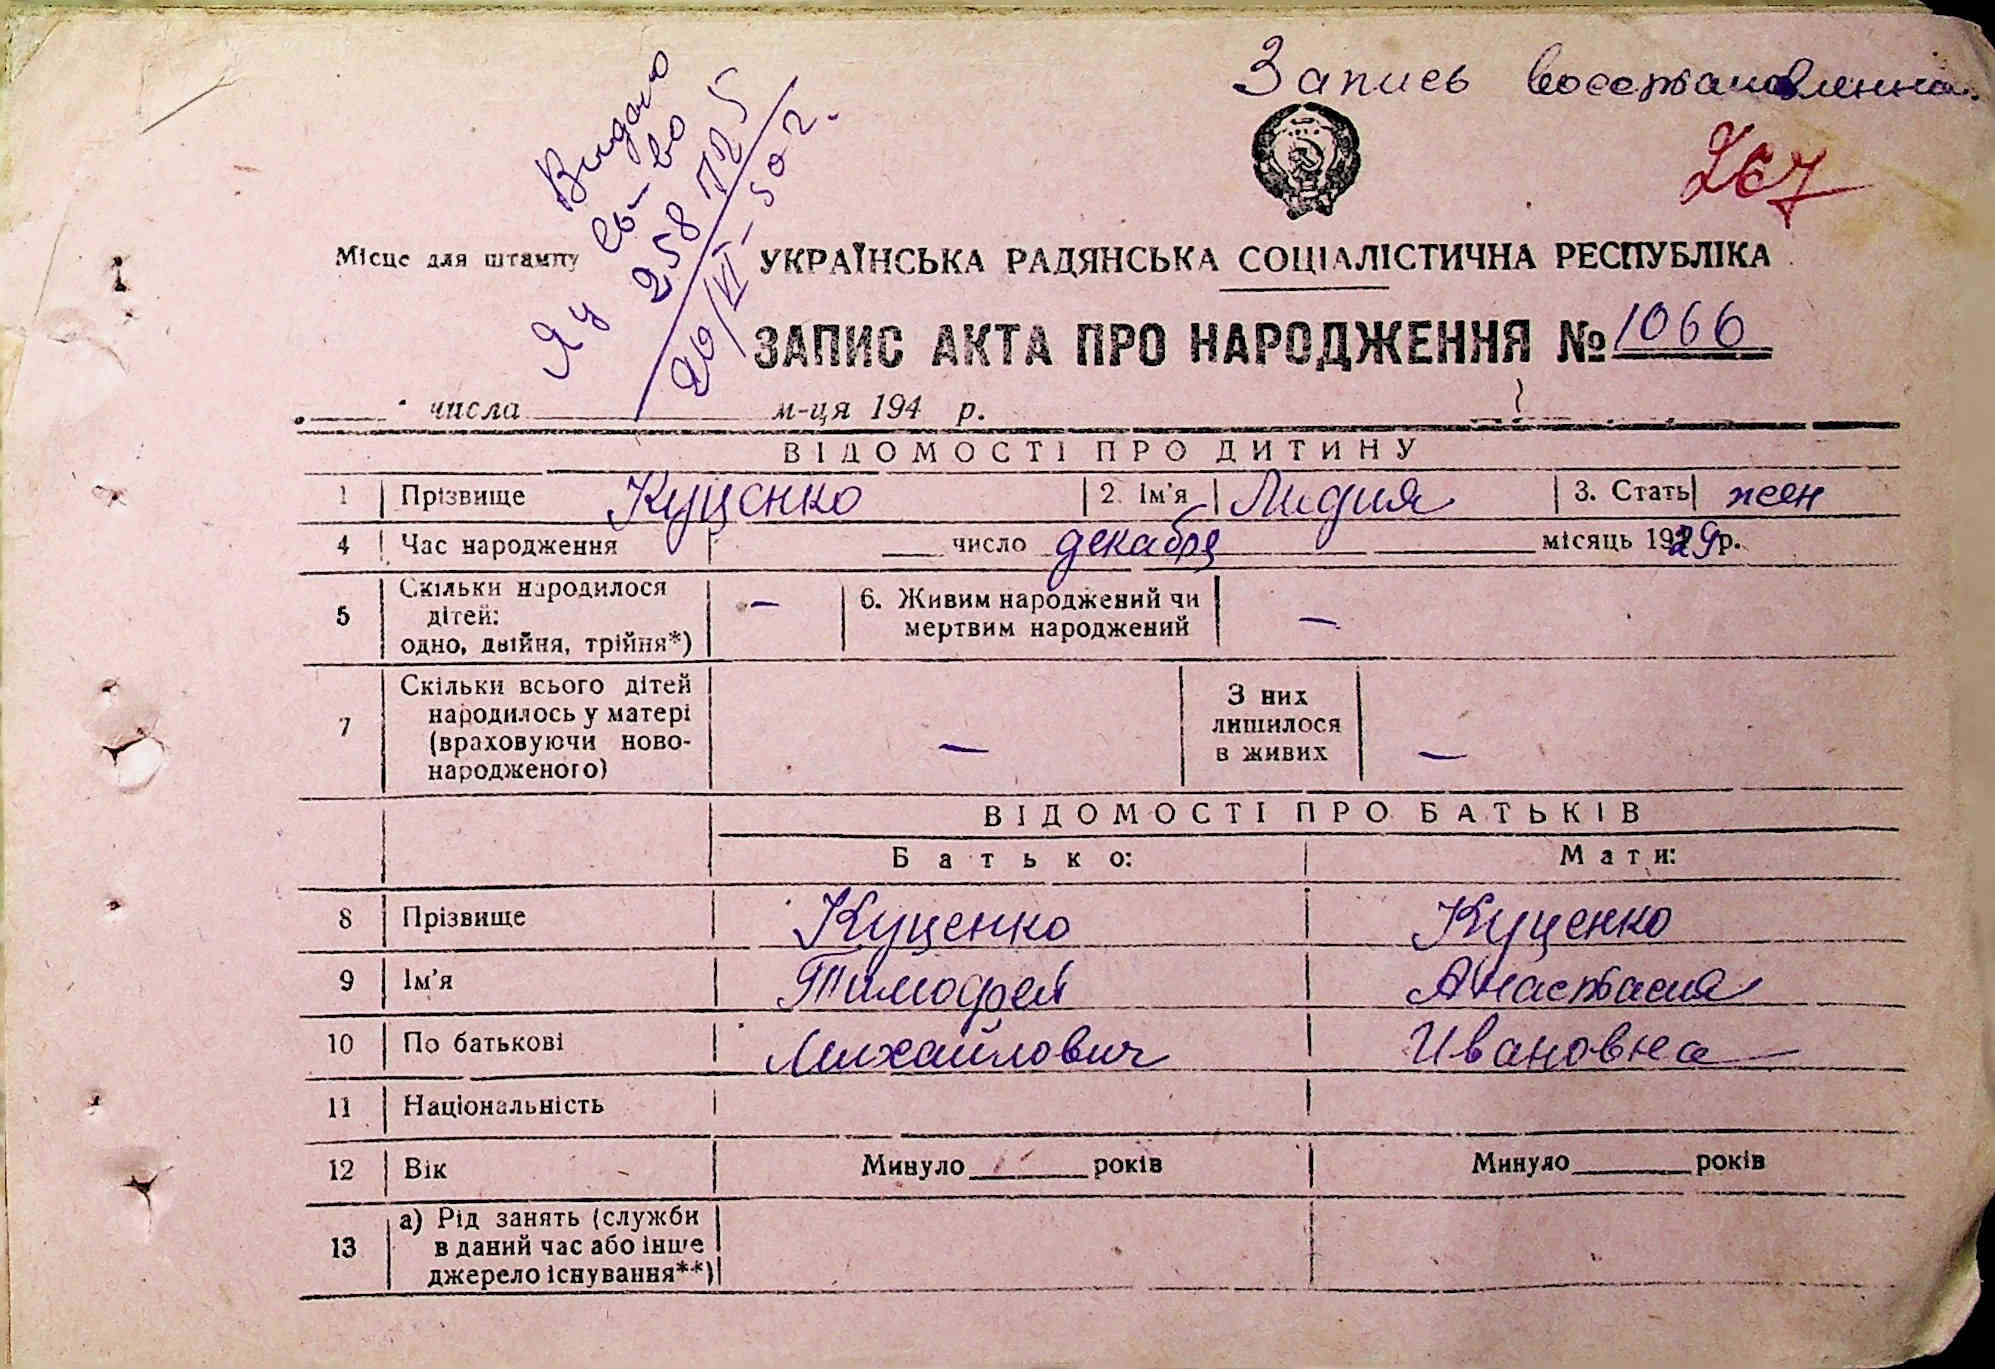 Запись восстановленна.
267
Видано
св-во
Яу 258725
20/VI-50 г.
Місце для штампу
УКРАЇНСЬКА РАДЯНСЬКА СОЦІАЛІСТИЧНА РЕСПУБЛІКА
ЗАПИС АКТА ПРО НАРОДЖЕННЯ № 1066
числа м-ця 194 р.
ВІДОМОСТІ ПРО ДИТИНУ
1 Прізвище Куценко 2. Ім'я Лидия 3. Стать жен
4 Час народження число декабря місяць 1929р.
5 Скільки народилося дітей: одно, двійня, трійня*) — 6. Живим народжений чи мертвим народжений —
7 Скільки всього дітей народилось у матері (враховуючи ново-народженого) — З них лишилося в живих —
ВІДОМОСТІ ПРО БАТЬКІВ
Батько: Мати:
8 Прізвище Куценко Куценко
9 Ім'я Тимофей Анастасия
10 По батькові Михайлович Ивановна
11 Національність
12 Вік Минуло років Минуло років
13 а) Рід занять (служби в даний час або інше джерело існування**)